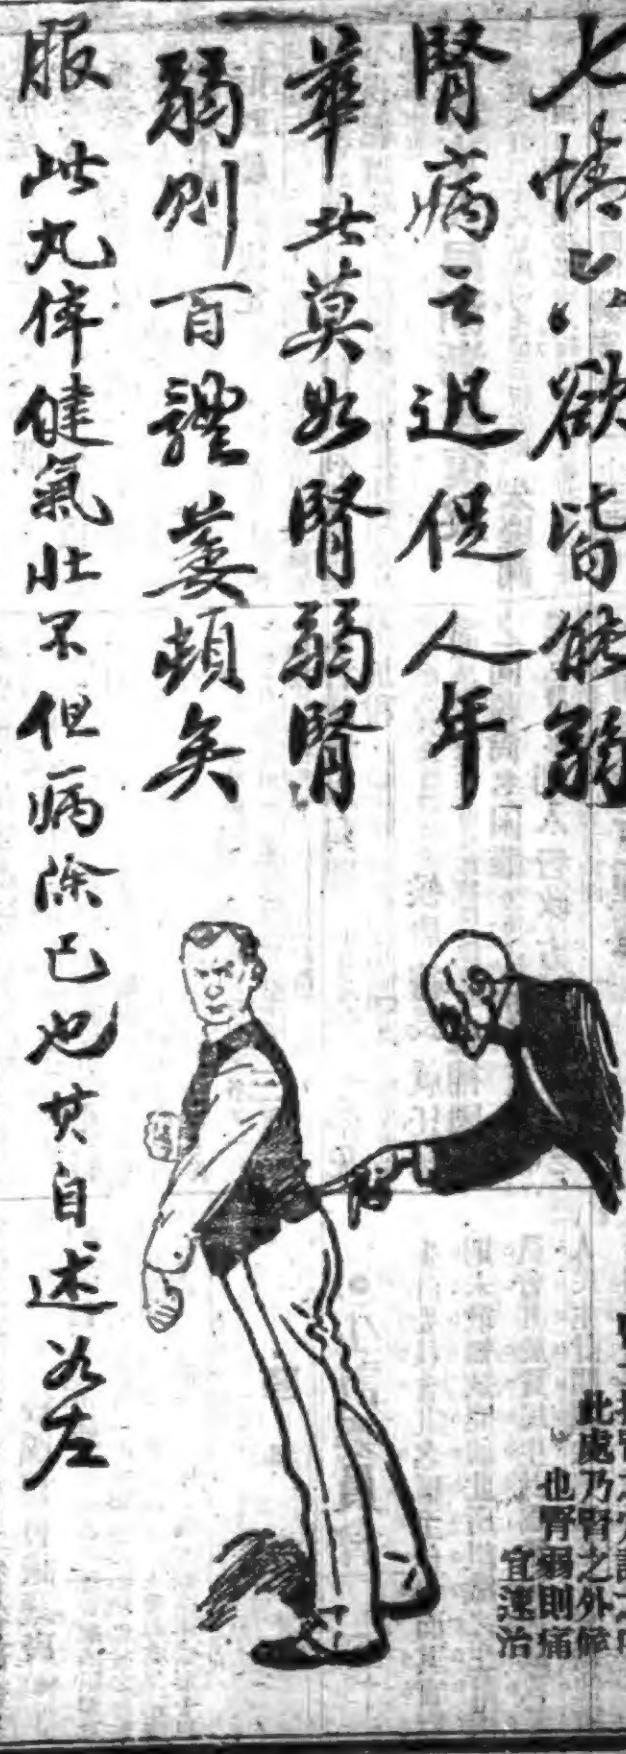 七情六欲皆能弱
腎病之迅促人年
華者莫如腎弱腎
弱則百體萎頓矣
服此丸体健氣壯不但病除已也其自述如左
此處乃腎之外俞
也腎弱則痛
宜速治